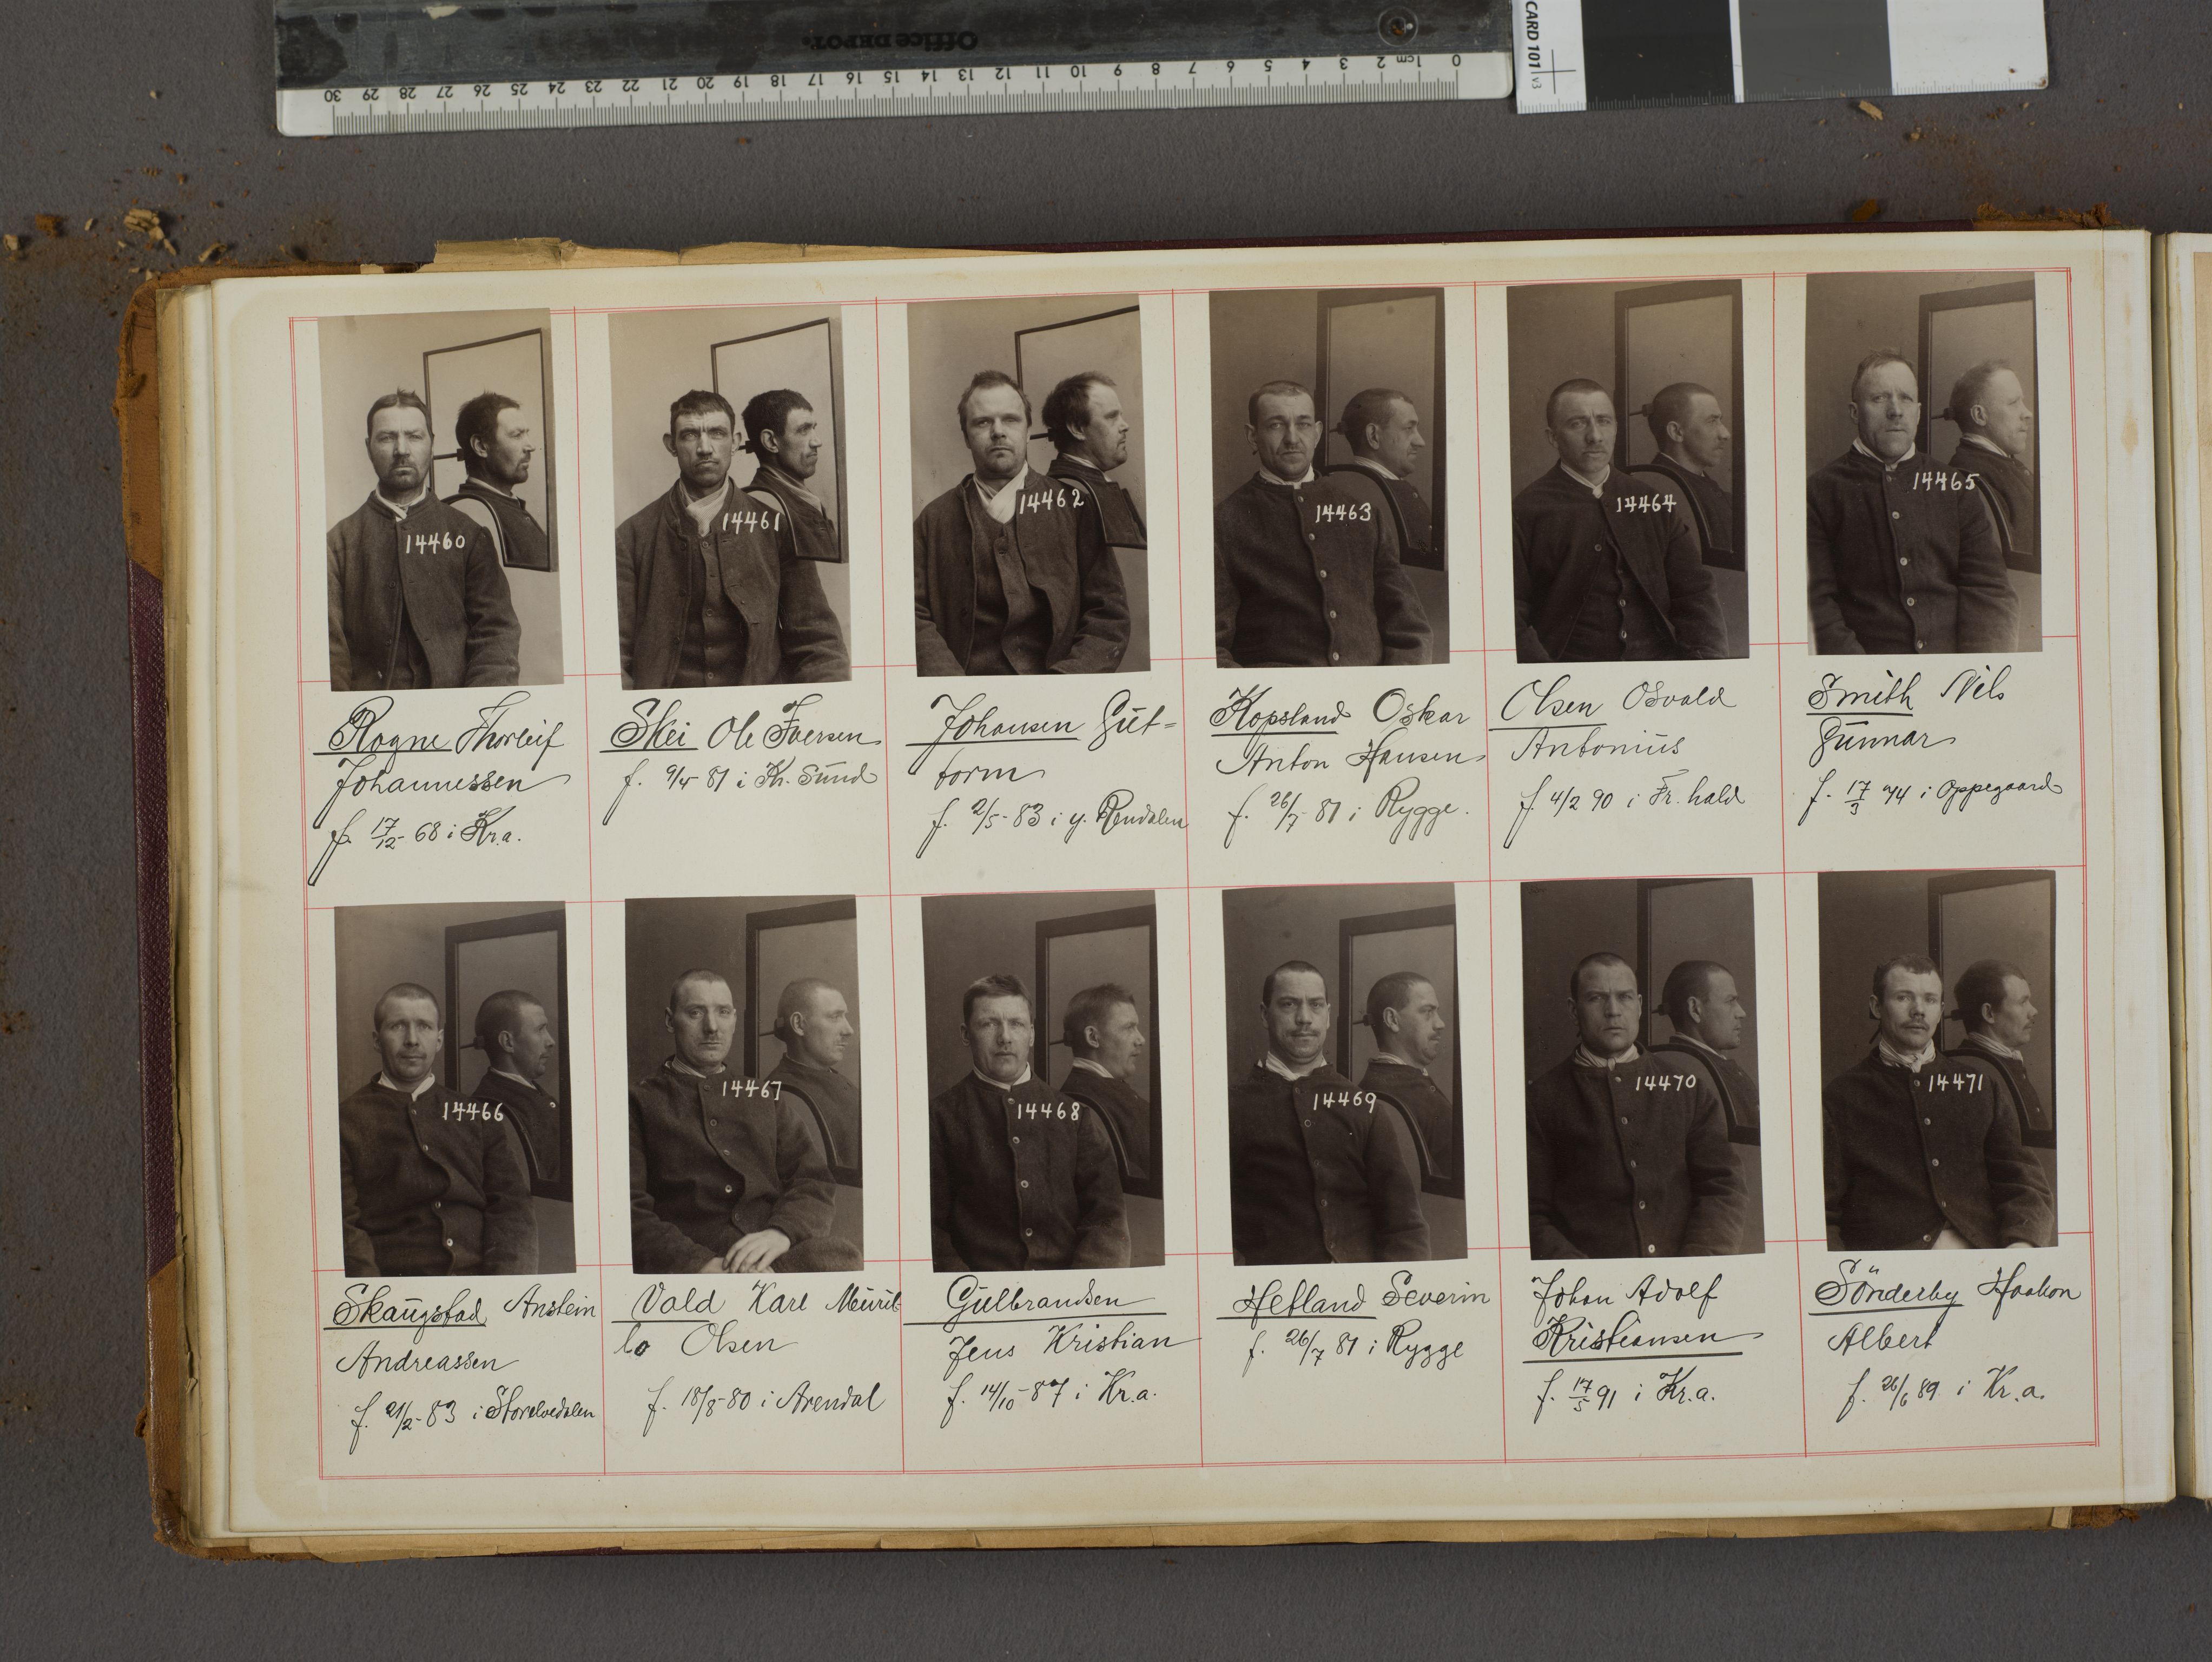 Office DEPOT.
0 1cm 2 3 4 5 6 7 8 9 10 11 12 13 14 15 16 17 18 19 20 21 22 23 24 25 26 27 28 29 30
CARD 101 v3
14460
14461
14462
14463
14464
14465
Rogne Thorleif
Johannessen
f. 17/12- 68 i Kr.a.
Skei Ole Iversen
f. 9/4 81 i Kr. Sund
Johansen Gut=
torm
f. 2/5- 83 i y. Rendalen
Kopsland Oskar
Anton Hansen
f. 26/7- 81 i Rygge.
Olsen Osvald
Antonius
f. 4/2 90 i Fr. hald
Smith Nils
Gunnar
f. 17/3 i Oppegaard
14466
14467
14468
14469
14470
14471
Skaugstad Anstein
Andreassen
f. 21/2- 83 i Storelvedalen
Vold Karl Muril-
lo Olsen
f. 18/8- 80 i Arendal
Gulbrandsen
Jens Kristian
f. 14/10- 87 i Kr.a.
Hetland Severin
f. 26/7 81 i Rygge
Johan Adolf
Kristiansen
f. 17/5 91 i Kr.a.
Sönderby Haakon
Albert
f. 26/6 89 i Kr.a.